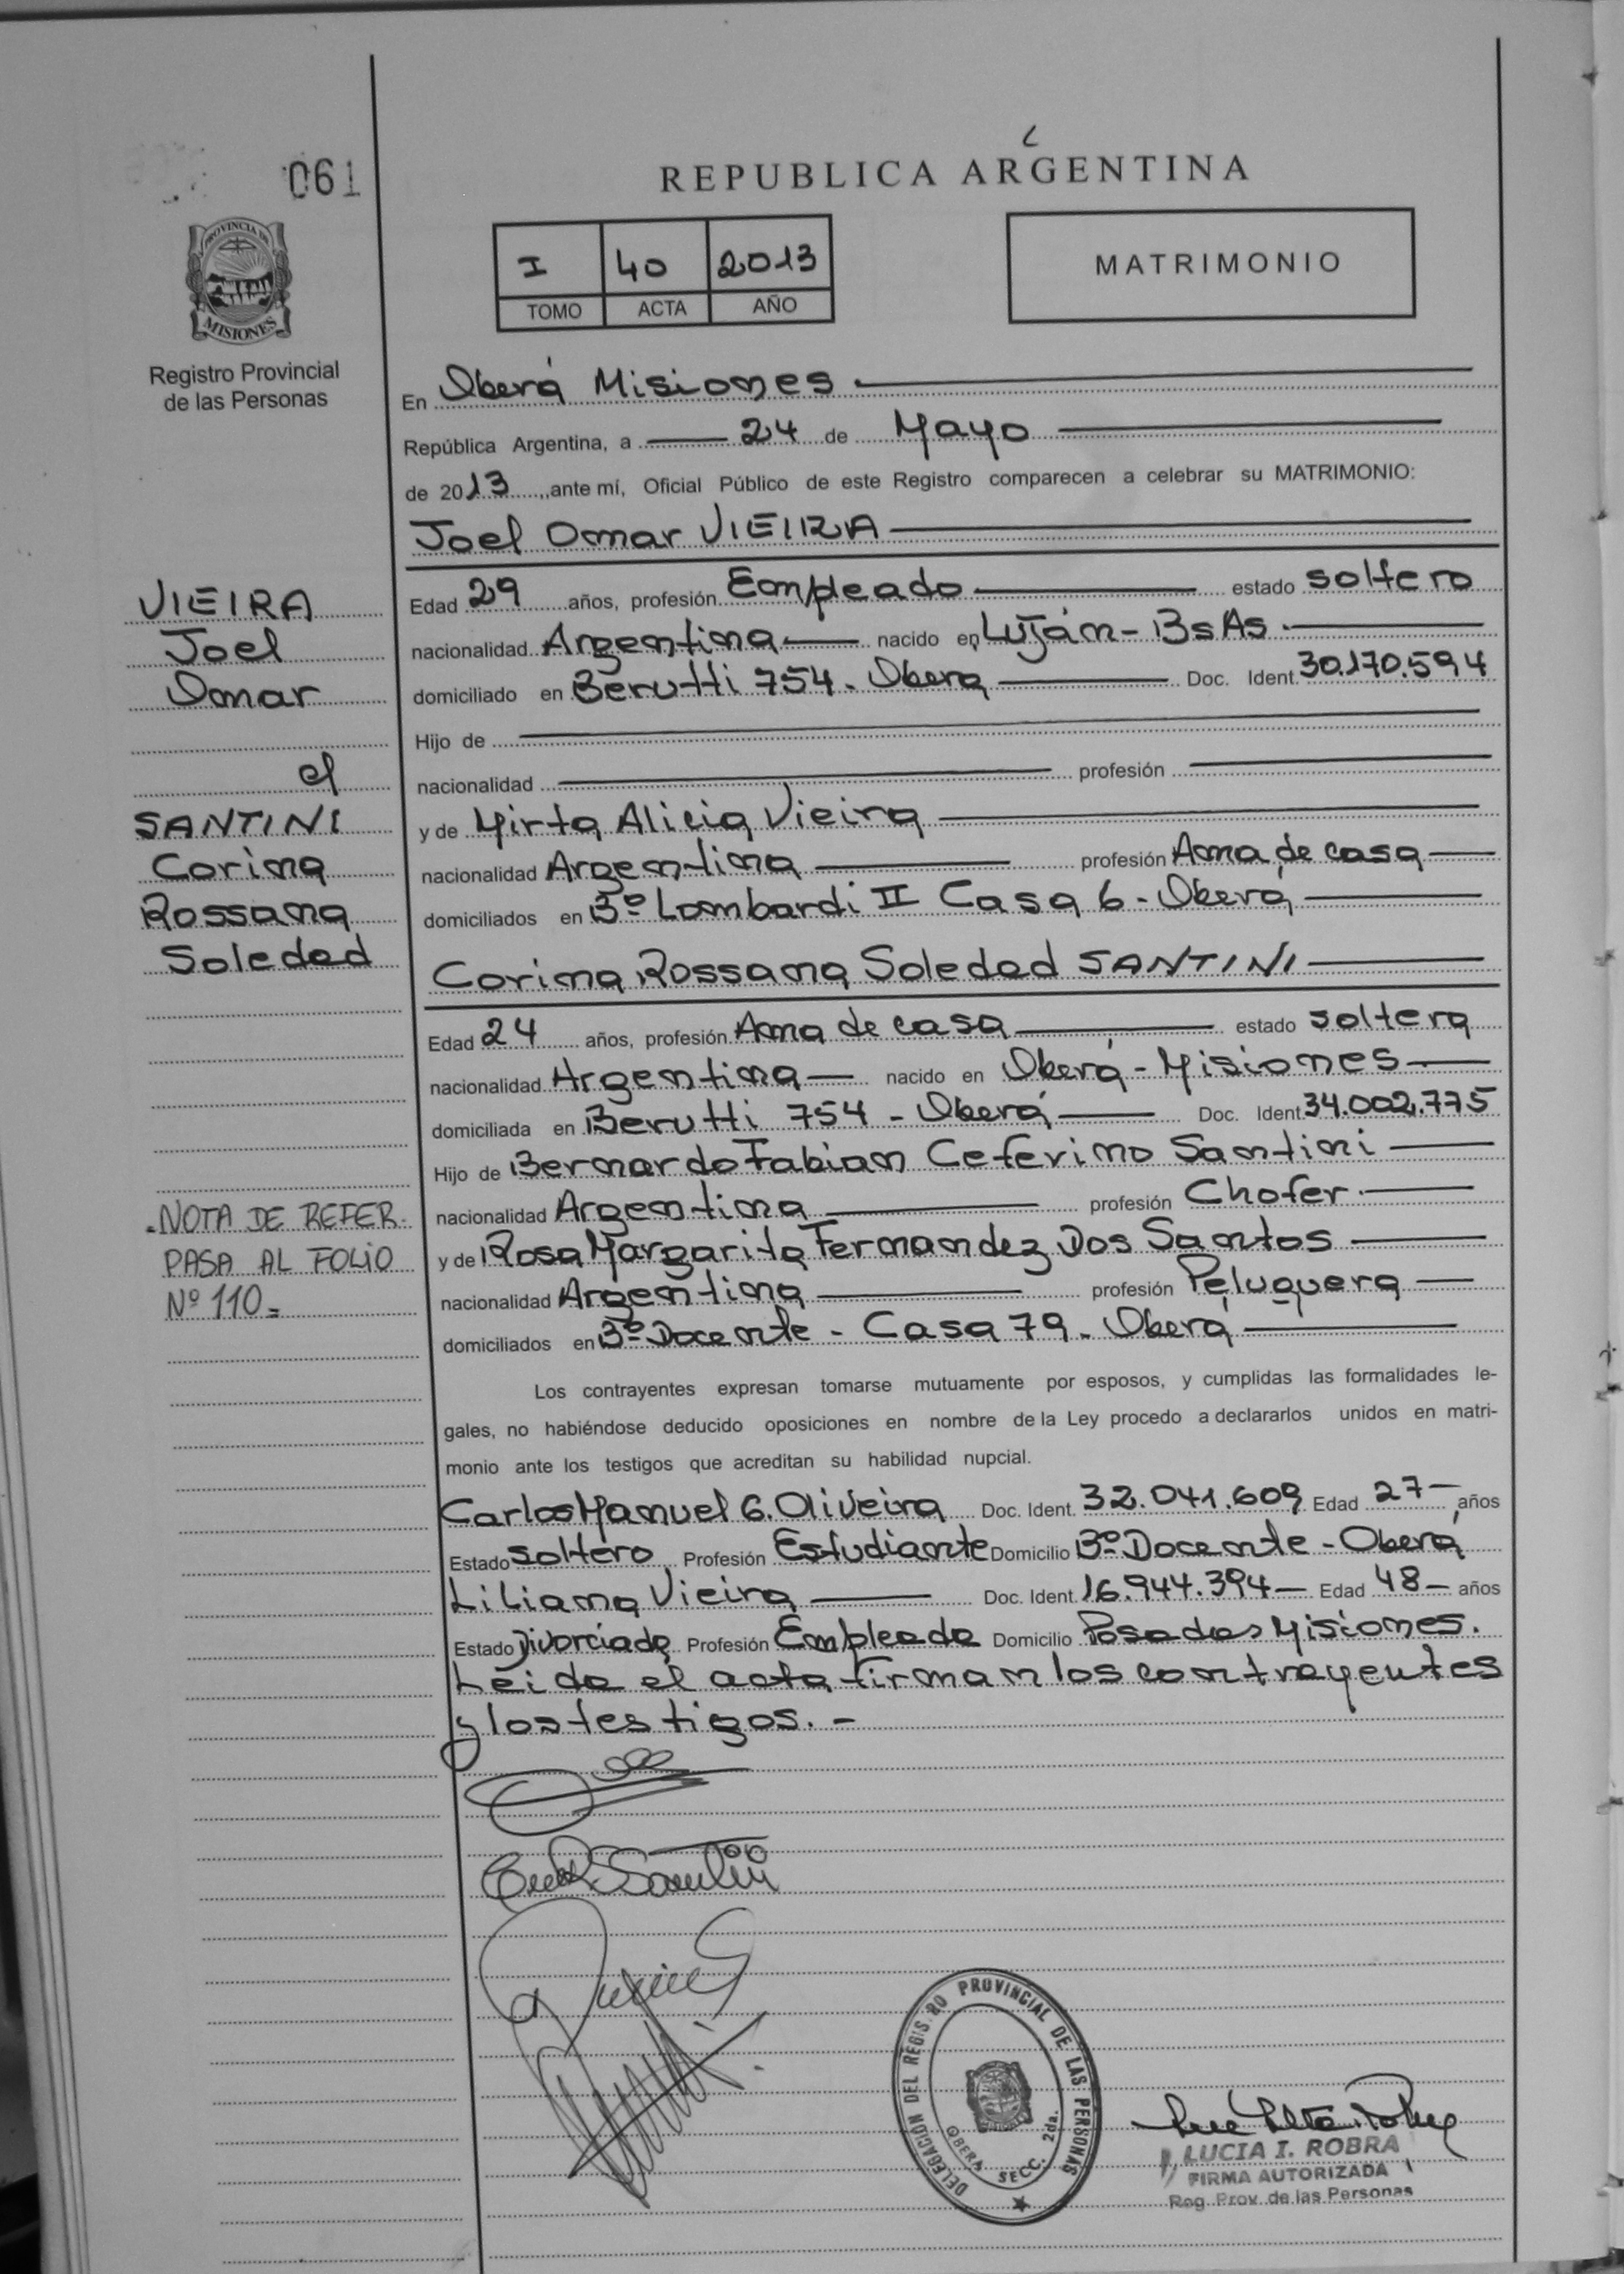 061
REPUBLICA ARGENTINA
I 40 2013
TOMO ACTA AÑO
MATRIMONIO
PROVINCIA DE
MISIONES
Registro Provincial
de las Personas
En Oberá Misiones
República Argentina, a 24 de Mayo
de 2013, ante mí, Oficial Público de este Registro comparecen a celebrar su MATRIMONIO:
Joel Omar VIEIRA
Edad 29 años, profesión Empleado estado soltero
nacionalidad Argentina nacido en Luján - Bs As.
domiciliado en Berutti 754 - Obera Doc. Ident. 30.170.594
Hijo de
nacionalidad profesión
y de Mirta Alicia Vieira
nacionalidad Argentina profesión Ama de casa
domiciliados en Bº Lombardi II Casa 6 - Oberá
Corina Rossana Soledad SANTINI
Edad 24 años, profesión Ama de casa estado soltera
nacionalidad Argentina nacido en Oberá - Misiones
domiciliada en Berutti 754 - Oberá Doc. Ident. 34.002.775
Hijo de Bernardo Fabian Ceferino Santini
nacionalidad Argentina profesión Chofer.
y de Rosa Margarita Fernandez Dos Santos
nacionalidad Argentina profesión Peluquera
domiciliados en Bº Docente - Casa 79 - Obera
Los contrayentes expresan tomarse mutuamente por esposos, y cumplidas las formalidades le-
gales, no habiéndose deducido oposiciones en nombre de la Ley procedo a declararlos unidos en matri-
monio ante los testigos que acreditan su habilidad nupcial.
Carlos Manuel G. Oliveira Doc. Ident. 32.041.609 Edad 27 años
Estado soltero Profesión Estudiante Domicilio Bº Docente - Oberá
Liliana Vieira Doc. Ident. 16.944.394 Edad 48 años
Estado Divorciada Profesión Empleada Domicilio Posadas Misiones.
Leida el acta firman los contrayentes
y los testigos. -
VIEIRA
Joel
Omar
c/
SANTINI
Corina
Rossana
Soledad
- NOTA DE REFER.
PASA AL FOLIO
Nº 110 =
DELEGACION DEL REGISTRO PROVINCIAL DE LAS PERSONAS
OBERA SECC. 2da.
LUCIA I. ROBRA
FIRMA AUTORIZADA
Reg. Prov. de las Personas